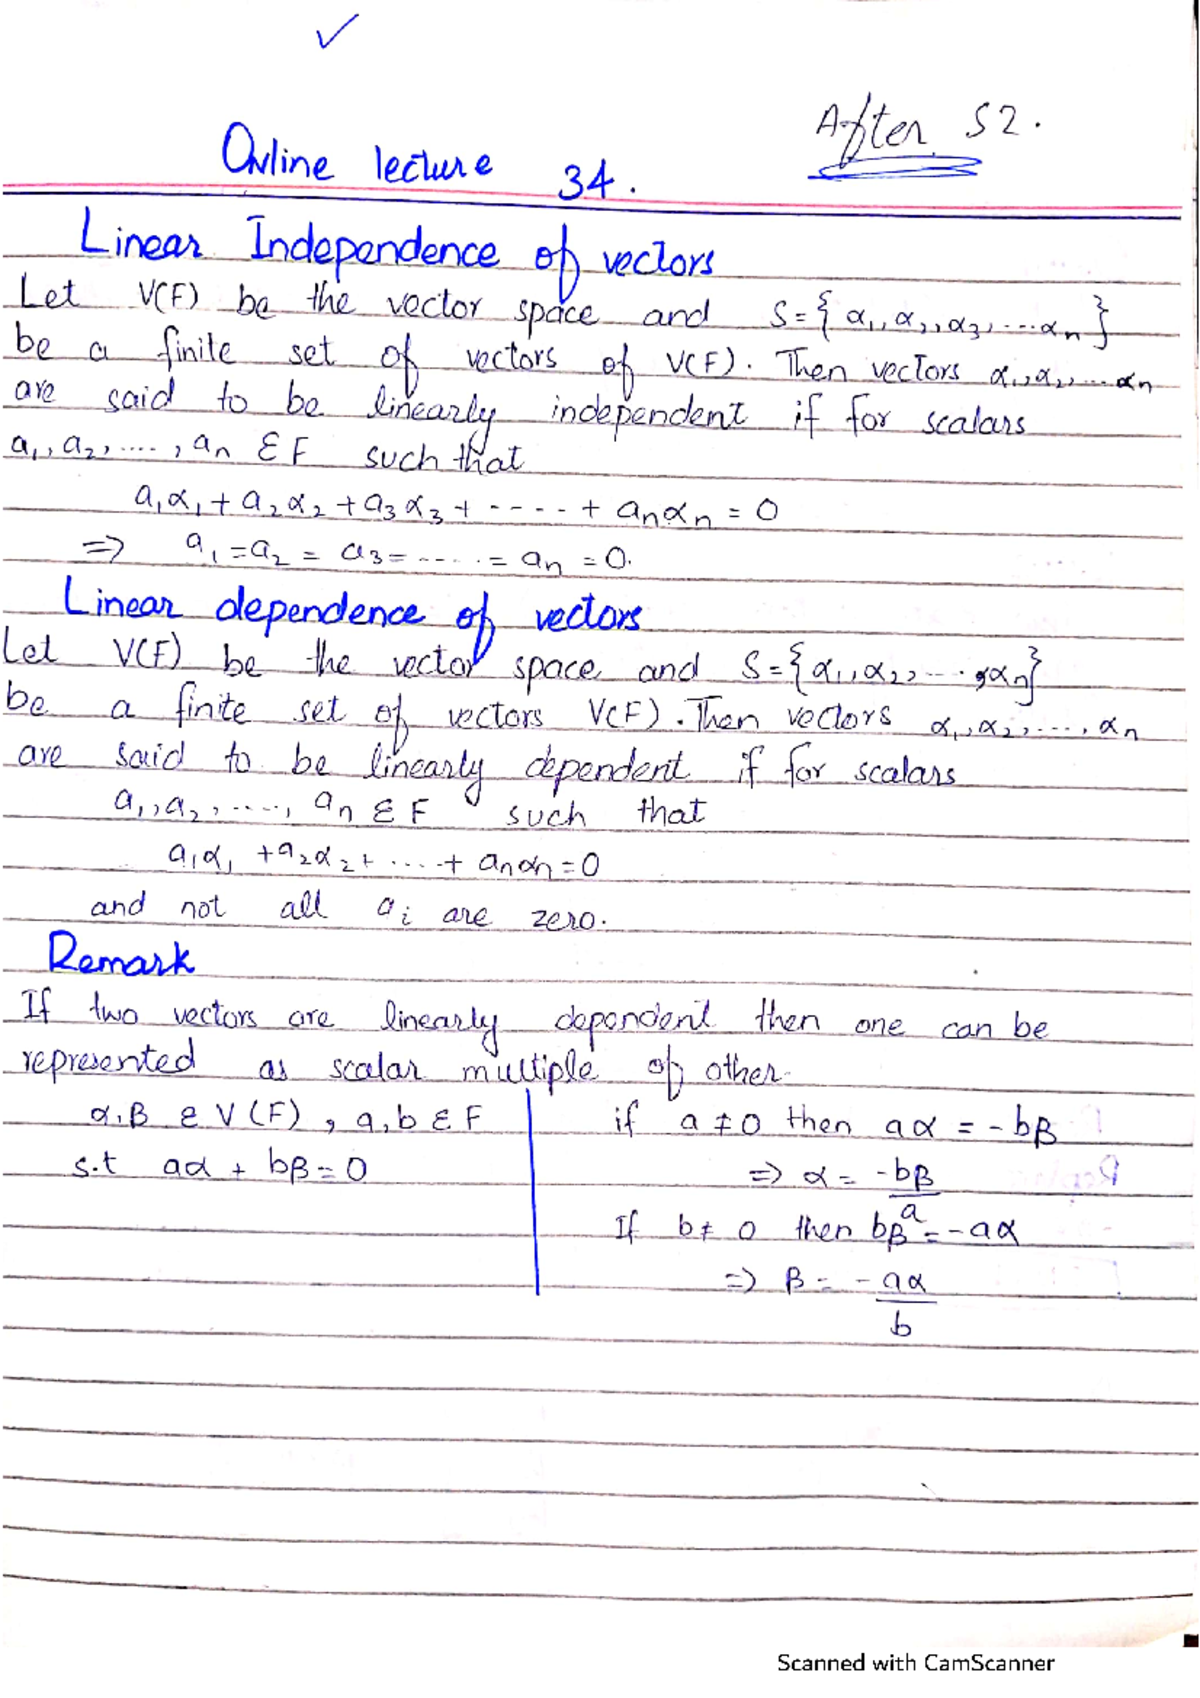 After S2.
Online lecture 34.
Linear Independence of vectors
Let V(F) be the vector space and S = { α₁, α₂, α₃, ... αₙ }
be a finite set of vectors of V(F). Then vectors α₁, α₂, ... αₙ
are said to be linearly independent if for scalars
a₁, a₂, ...., aₙ ∈ F such that
a₁α₁ + a₂α₂ + a₃α₃ + ---- + aₙαₙ = 0
⇒ a₁ = a₂ = a₃ = ..... = aₙ = 0.
Linear dependence of vectors
Let V(F) be the vector space and S = {α₁, α₂, ...., αₙ}
be a finite set of vectors V(F). Then vectors α₁, α₂, ...., αₙ
are said to be linearly dependent if for scalars
a₁, a₂, ....., aₙ ∈ F such that
a₁α₁ + a₂α₂ + .... + aₙαₙ = 0
and not all aᵢ are zero.
Remark
If two vectors are linearly dependent then one can be
represented as scalar multiple of other.
α, β ∈ V(F), a, b ∈ F
s.t aα + bβ = 0
if a ≠ 0 then aα = -bβ
⇒ α = -bβ/a
If b ≠ 0 then bβ = -aα
⇒ β = -aα/b
Scanned with CamScanner